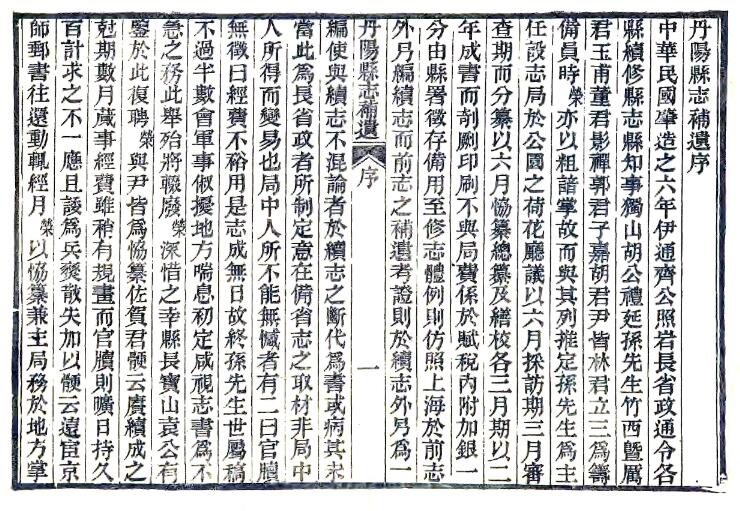 丹陽縣志補遺序
中華民國肇造之六年伊通齊公照岩長省政通令各
縣續修縣志縣知事獨山胡公禮延孫先生竹西暨厲
君玉甫董君影禪郭君子嘉胡君尹皆林君立三爲籌
備員時榮亦以粗諳掌故而與其列推定孫先生爲主
任設志局於公園之荷花廳議以六月採訪期三月審
查期而分纂以六月恊纂總纂及繕校各三月期以二
年成書而剞劂印刷不與局費係於賦稅內附加銀一
分由縣署徵存備用至修志體例則仿照上海於前志
外另編續志而前志之補遺考證則於續志外另爲一
丹陽縣志補遺 序 一
編使與續志不混論者於續志之斷代爲書或病其未
當此爲長省政者所制定意在備省志之取材非局中
人所得而變易也局中人所不能無憾者有二曰官牘
無徵曰經費不裕用是志成無日故終孫先生世屬稿
不過半數會軍事俶擾地方喘息初定咸視志書爲不
急之務此舉殆將輟廢榮深惜之幸縣長寶山袁公有
鑒於此復聘榮與尹皆爲恊纂佐賀君骾云賡續成之
尅期數月蕆事經費雖稍有規畫而官牘則曠日持久
百計求之不一應且諉爲兵燹散失加以骾云遠宦京
師郵書往還動輒經月榮以恊纂兼主局務於地方掌